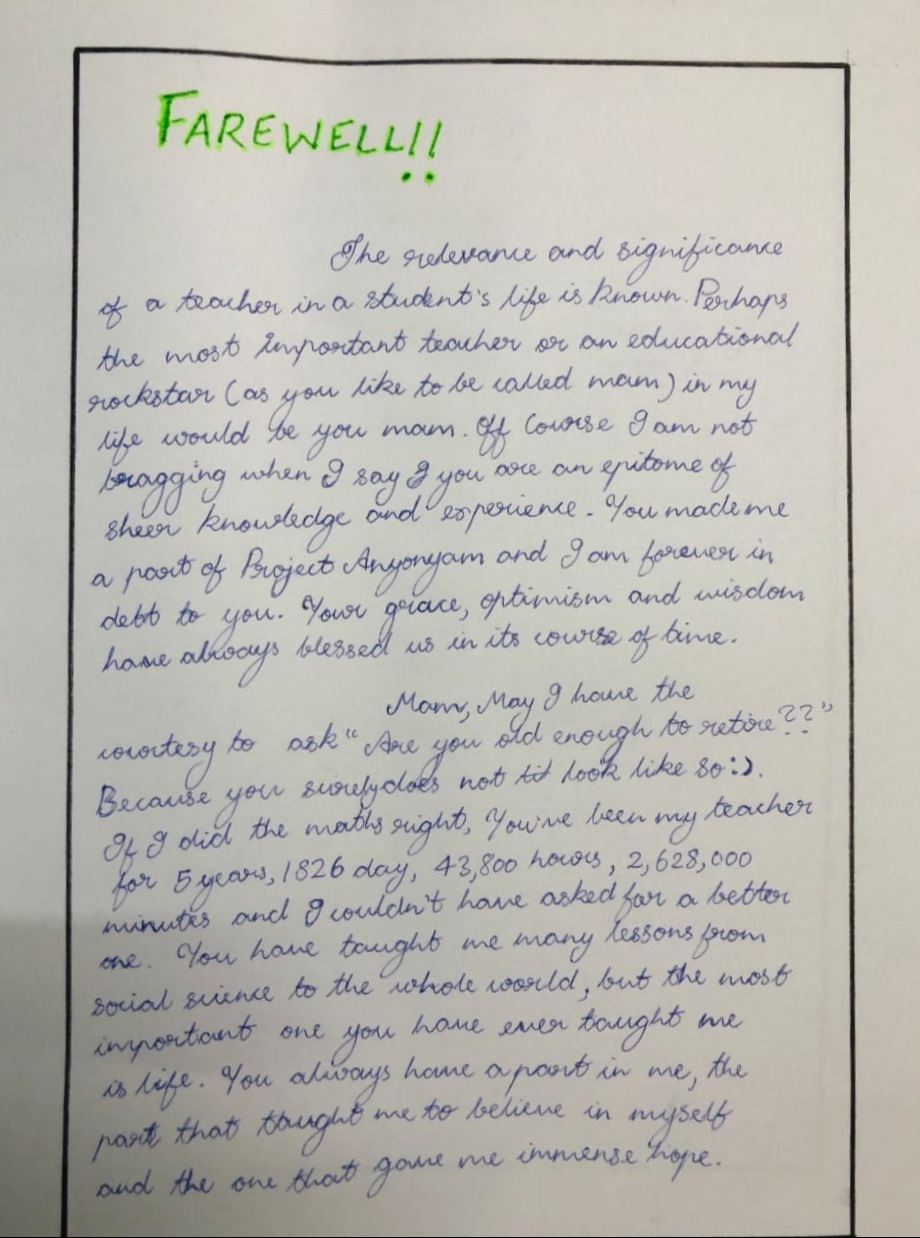 FAREWELL!!
The relevance and significance
of a teacher in a student's life is known. Perhaps
the most important teacher or an educational
rockstar (as you like to be called mam) in my
life would be you mam. Off Course I am not
bragging when I say you are an epitome of
sheer knowledge and experience. You made me
a part of Project Anyonyam and I am forever in
debt to you. Your grace, optimism and wisdom
have always blessed us in its course of time.
Mam, May I have the
courtesy to ask "Are you old enough to retire??"
Because you surely does not look like so:).
If I did the maths right, You've been my teacher
for 5 years, 1826 day, 43,800 hours, 2,628,000
minutes and I couldn't have asked for a better
one. You have taught me many lessons from
social science to the whole world, but the most
important one you have ever taught me
is life. You always have a part in me, the
part that taught me to believe in myself
and the one that gave me immense hope.